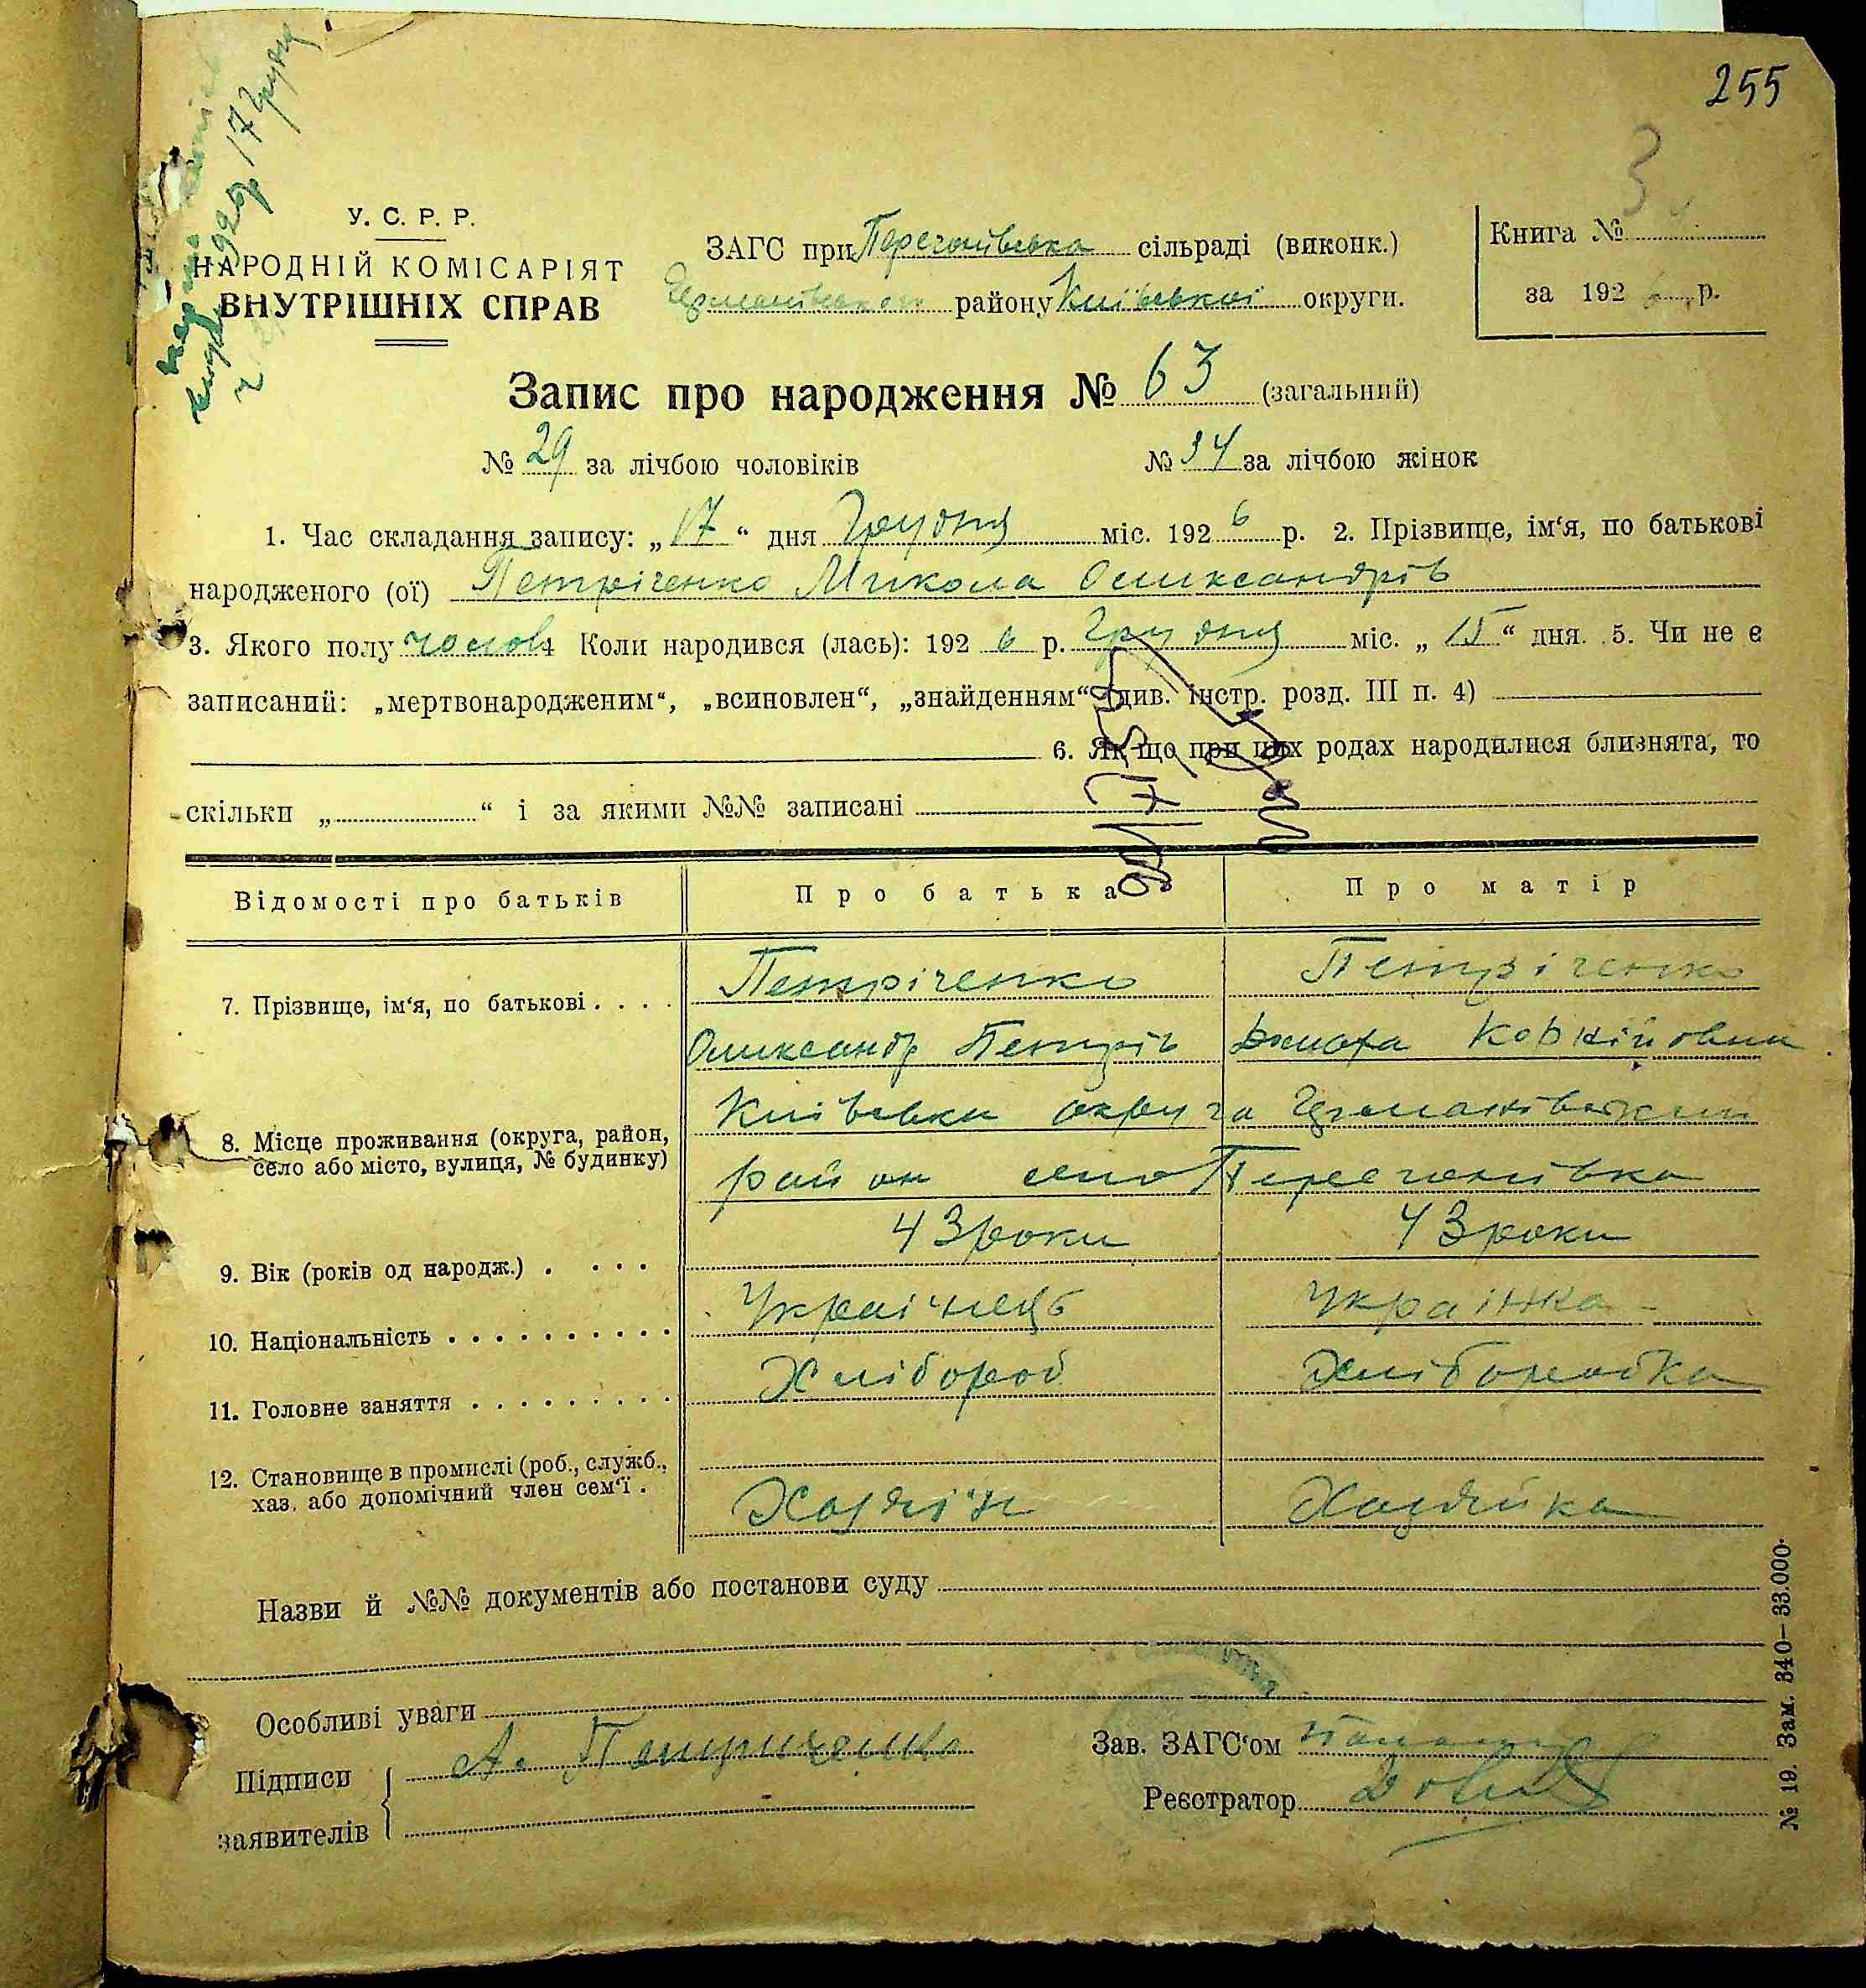 255
3
У. С. Р. Р.
НАРОДНІЙ КОМІСАРІЯТ
ВНУТРІШНІХ СПРАВ
ЗАГС при сільраді (виконк.)
району Київської округи.
Книга №
за 192 6 р.
17 грудня
Запис про народження № 63 (загальний)
№ 29 за лічбою чоловіків № 34 за лічбою жінок
1. Час складання запису: „17“ дня Грудня міс. 192 6 р. 2. Прізвище, ім‘я, по батькові
народженого (ої) Петріченко Микола Олександрів
3. Якого полу чолов 4 Коли народився (лась): 192 6 р. Грудня міс. „15“ дня. 5. Чи не є
записаний: „мертвонародженим“, „всиновлен“, „знайденням“ (див. інстр. розд. III п. 4)
6. Як що при цих родах народилися близнята, то
скільки „ “ і за якими №№ записані
Відомості про батьків Про батька Про матір
7. Прізвище, ім‘я, по батькові Петріченко Петріченко
Олександр Петрів Корнійовна
8. Місце проживання (округа, район,
село або місто, вулиця, № будинку)
Київська округа
район село
9. Вік (років од народж.) 43 роки 43 роки
10. Національність Українець Українка
11. Головне заняття Хлібороб Хліборобка
12. Становище в промислі (роб., служб.,
хаз. або допомічний член сем‘ї .
Хазяїн Хазяйка
Назви й №№ документів або постанови суду
Особливі уваги
Підписи
заявителів
А. Петриченко
Зав. ЗАГС‘ом
Реєстратор
№ 19. Зам. 340—33.000.